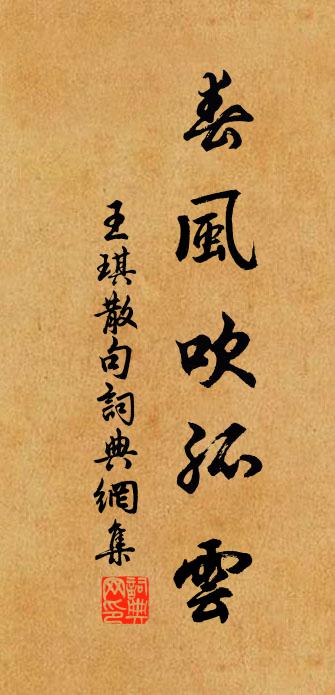 春風吹孤雲
王琪散句詞典網集
詞典網印